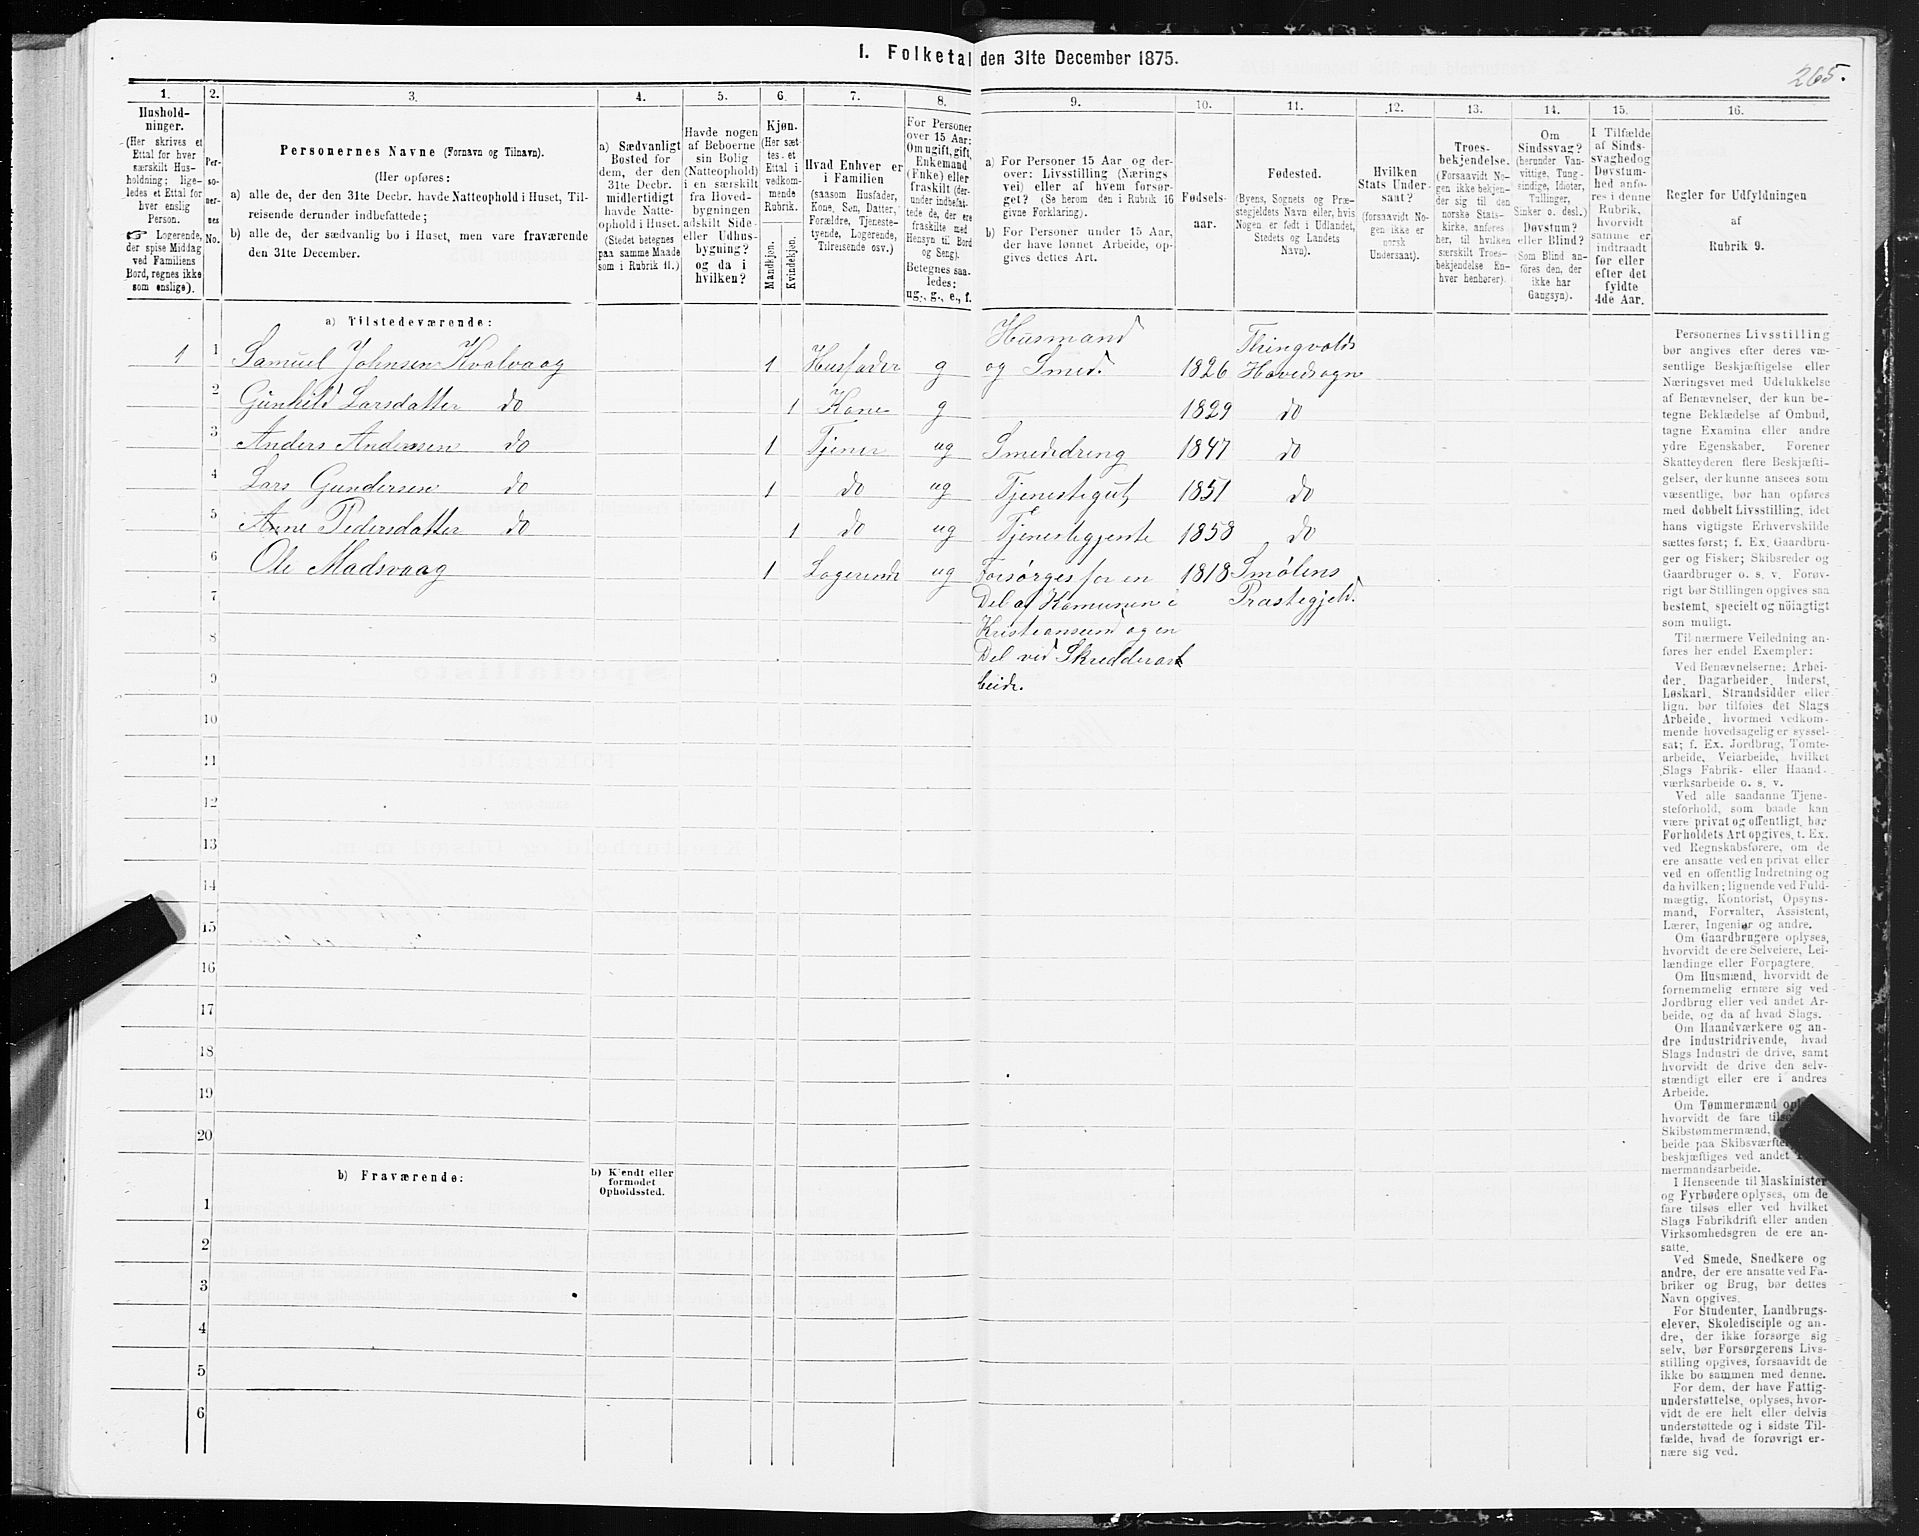 I. Folketal den 31te December 1875.
265.
1. 2. 3. 4. 5. 6. 7. 8. 9. 10. 11. 12. 13. 14. 15. 16.
Hushold-
ninger.
(Her skrives et
Ettal for hver
særskilt Hus-
holdning; lige-
ledes et Ettal for
hver enslig
Person.
☞ Logerende,
der spise Middag
ved Familiens
Bord, regnes ikke
som enslige).
Per-
so-
ner-
nes
No.
Personernes Navne (Fornavn og Tilnavn).
(Her opføres:
a) alle de, der den 31te Decbr. havde Natteophold i Huset, Til-
reisende derunder indbefattede;
b) alle de, der sædvanlig bo i Huset, men vare fraværende
den 31te December.
a) Sædvanligt
Bosted for
dem, der den
31te Decbr.
midlertidigt
havde Natte-
ophold i Huset.
(Stedet betegnes
paa samme Maade
som i Rubrik 11.)
Havde nogen
af Beboerne
sin Bolig
(Natteophold)
i en særskilt
fra Hoved-
bygningen
adskilt Side-
eller Udhus-
bygning?
og da i
hvilken?
Kjøn.
(Her sæt-
tes et
Ettal i
vedkom-
mende
Rubrik.
Mandkjøn.
Kvindekjøn.
Hvad Enhver er
i Familien
(saasom Husfader,
Kone, Søn, Datter,
Forældre, Tjeneste-
tyende, Logerende,
Tilreisende osv.)
For Personer
over 15 Aar:
Om ugift, gift,
Enkemand
(Enke) eller
fraskilt (der-
under indbefat-
tede de, der ere
fraskilte med
Hensyn til Bord
og Seng).
Betegnes saa-
ledes:
ug., g., e., f.
a) For Personer 15 Aar og der-
over: Livsstilling (Nærings
vei) eller af hvem forsør-
get? (Se herom den i Rubrik 16
givne Forklaring).
b) For Personer under 15 Aar,
der have lønnet Arbeide, op-
gives dettes Art.
Fødsels-
aar.
Fødested.
(Byens, Sognets og Præ-
stegjeldets Navn eller, hvis
Nogen er født i Udlandet,
Stedets og Landets
Navn).
Hvilken
Stats Under-
saat?
(forsaavidt No-
gen ikke er
norsk
Undersaat).
Troes-
bekjendelse.
(Forsaavidt No-
gen ikke bekjen-
der sig til den
norske Stats-
kirke, anføres
her, til hvilken
særskilt Troes-
bekjendelse En-
hver henhører).
Om
Sindssvag?
(herunder Van-
vittige, Tung-
sindige, Idioter,
Tullinger,
Sinker o. desl.)
Døvstum?
eller Blind?
(Som Blind an-
føres den, der
ikke har
Gangsyn).
I Tilfælde
af Sinds-
svaghed og
Døvstum-
hed anfø-
res i denne
Rubrik,
hvorvidt
samme er
indtraadt
før eller
efter det
fyldte
4de Aar.
Regler for Udfyldningen
af
Rubrik 9.
a) Tilstedeværende:
Husmand Thingvolds
1 1 Samuel Johnsen Kvalvaag 1 Husfader g og Smed. 1826 Hovedsogn
2 Gunhild Larsdatter do 1 Kone g 1829 do
3 Anders Andersen do 1 Tjener ug Smededreng 1847 do
4 Lars Gundersen do 1 do ug Tjenestegut 1851 do
5 Anne Pedersdatter do 1 do ug Tjenestegjente 1858 do
6 Ole Madsvaag 1 Logerende ug Forsørges for en 1818 Smølens
7 Del af Komunen i Præstegjeld.
8 Kristiansund og en
Del ved Skredderar
9 beide.
10
11
12
13
14
15
16
17
18
19
20
b) Fraværende:
b) Kjendt eller
formodet
Opholdssted.
1
2
3
4
5
6
Personernes Livsstilling
bør angives efter deres væ-
sentlige Beskjæftigelse eller
Næringsvei med Udelukkelse
af Benævnelser, der kun be-
tegne Beklædelse af Ombud,
tagne Examina eller andre
ydre Egenskaber. Forener
Skatteyderen flere Beskjæfti-
gelser, der kunne ansees som
væsentlige, bør han opføres
med dobbelt Livsstilling, idet
hans vigtigste Erhvervskilde
sættes først; f. Ex. Gaardbru-
ger og Fisker; Skibsreder og
Gaardbruger o. s. v. Forøv-
rigt bør Stillingen opgives saa
bestemt, specielt og nöiagtigt
som muligt.
Til nærmere Veiledning an-
føres her endel Exempler:
Ved Benævnelserne: Arbei-
der, Dagarbeider, Inderst,
Løskarl, Strandsidder eller
lign. bør tilføies det Slags
Arbeide, hvormed vedkom-
mende hovedsagelig er syssel-
sat; f. Ex. Jordbrug, Tomte-
arbeide, Veiarbeide, hvilket
Slags Fabrik- eller Haand-
værksarbeide o. s. v.
Ved alle saadanne Tjene-
steforhold, som baade kan
være privat og offentligt, bør
Forholdets Art opgives, t. Ex.
ved Regnskabsførere, om de
ere ansatte ved en privat eller
ved en offentlig Indretning og
da hvilken; lignende ved Fuld-
mægtig, Kontorist, Opsyns-
mand, Forvalter, Assistent,
Lærer, Ingeniør og andre.
Om Gaardbrugere oplyses,
hvorvidt de ere Selveiere, Lei-
lændinge eller Forpagtere.
Om Husmænd, hvorvidt de
fornemmelig ernære sig ved
Jordbrug eller ved andet Ar-
beide, og da af hvad Slags.
Om Haandværkere og an-
dre Industridrivende, hvad
Slags Industri de drive, samt
hvorvidt de drive den selv-
stændigt eller ere i andres
Arbeide.
Om Tømmermænd
hvorvidt de fare
Skibstømmermænd,
beide paa Skibsværfter
beskjæftiges ved andet
mermandsarbeide.
I Henseende til Maskinister
og Fyrbødere oplyses, om de
fare tilsøs eller ved hvilket
Slags Fabrikdrift eller anden
Virksomhedsgren de ere an-
satte.
Ved Smede, Snedkere og
andre, der ere ansatte ved Fa-
briker og Brug, bør dettes
Navn opgives.
For Studenter, Landbrugs-
elever, Skoledisciple og an-
dre, der ikke forsørge sig
selv, bør Forsørgerens Livs-
stilling opgives, forsaavidt de
ikke bo sammen med denne.
For dem, der have Fattig-
understøttelse, oplyses, hvor-
vidt de ere helt eller delvis
understøttede og i sidste Til-
fælde, hvad de forøvrigt er-
nære sig ved.